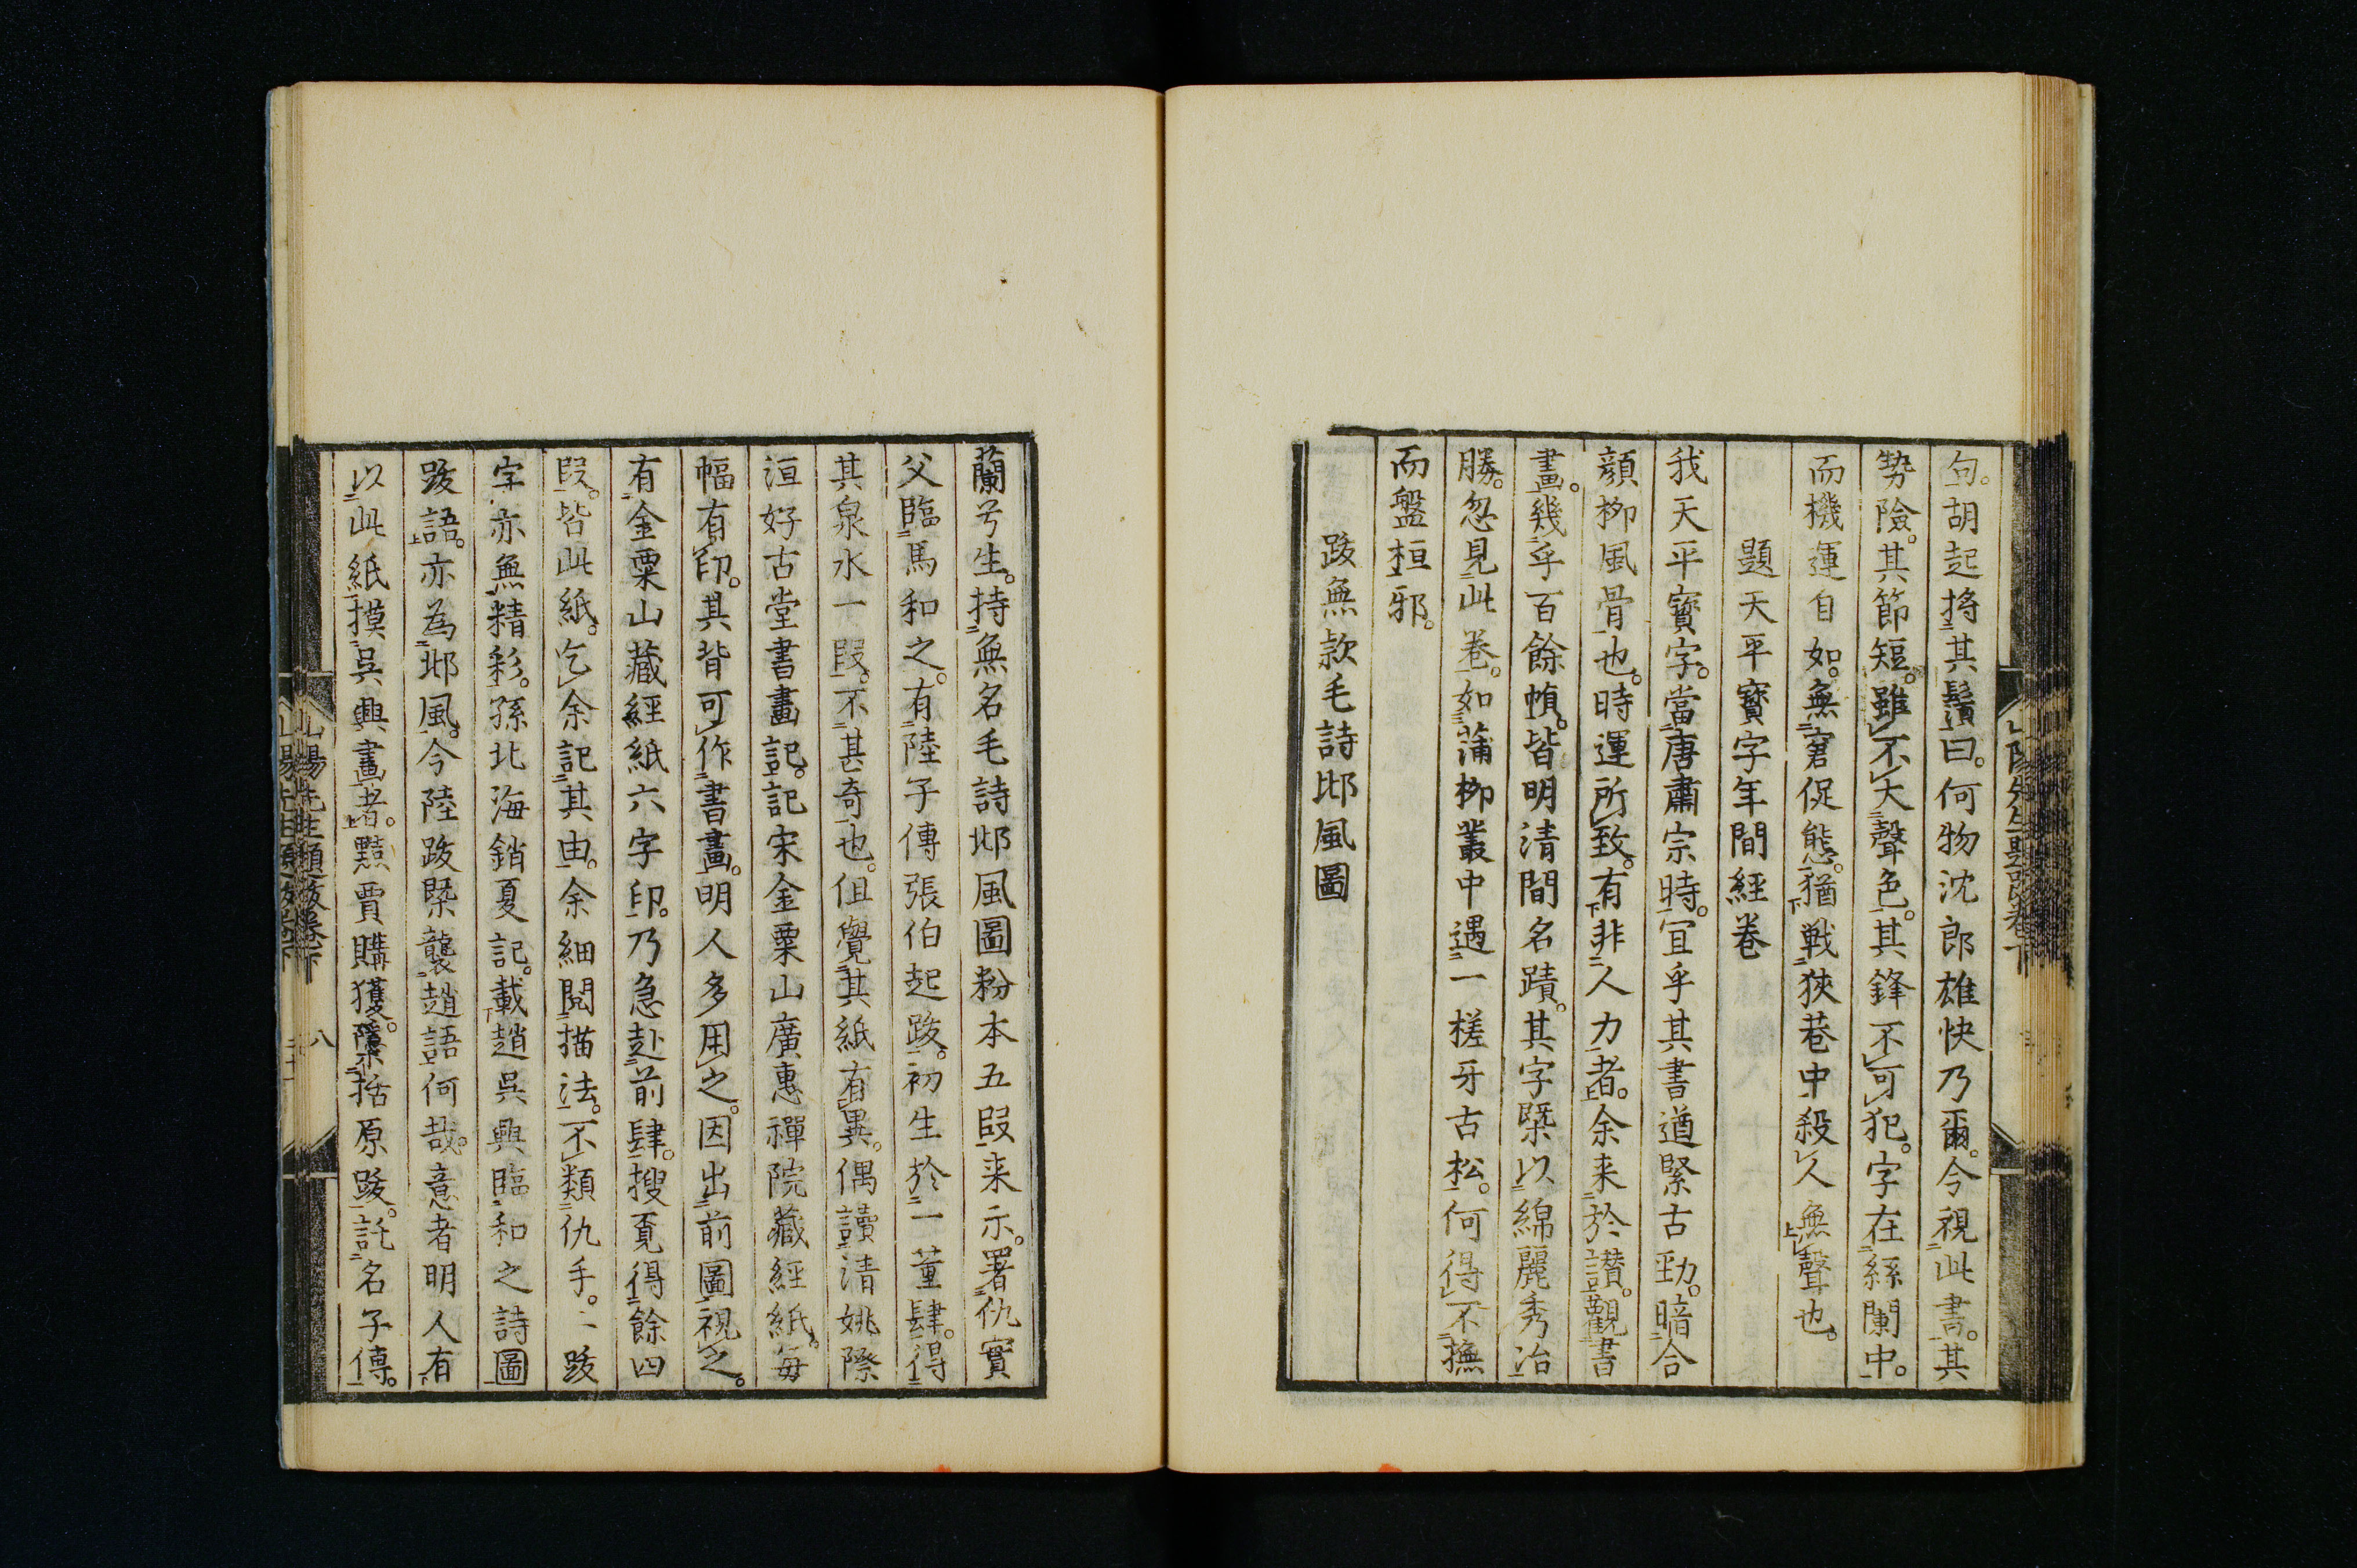 句。胡起将其鬚曰。何物沈郎雄快乃爾。今視此書。其
勢險。其節短。雖不大聲色。其鋒不可犯。字在絲闌中。
而機運自如。無窘促態。猶戦狹巷中殺人無聲也。
題天平寳字年間經卷
我天平寳字。當唐肅宗時。宜乎其書遒緊古勁。暗合
顔柳風骨也。時運所致。有非人力者。余来於讃。觀書
畫。幾乎百餘幀。皆明清間名蹟。其字槩以綿麗秀冶
勝。忽見此卷。如蒲柳叢中遇一槎牙古松。何得不撫
而盤桓邪。
跋無款毛詩邶風圖
蘭兮生。持無名毛詩邶風圖粉本五段来示。署仇實
父臨馬和之。有陸子傳張伯起跋。初生於一董肆。得
其泉水一段。不甚奇也。但覺其紙有異。偶讀清姚際
洹好古堂書畫記。記宋金粟山廣惠禪院藏經紙。每
幅有印。其背可作書畫。明人多用之。因出前圖視之。
有金粟山藏經紙六字印。乃急赴前肆。搜覓得餘四
段。皆此紙。乞余記其由。余細閱描法。不類仇手。二跋
字亦無精彩。孫北海銷夏記。載趙吳興臨和之詩圖
跋語。亦為邶風。今陸跋槩襲趙語何哉。意者明人有
以此紙摸吳興畫者。黠賈購獲。檃括原跋。託名子傳。
山陽先生題跋卷下
八